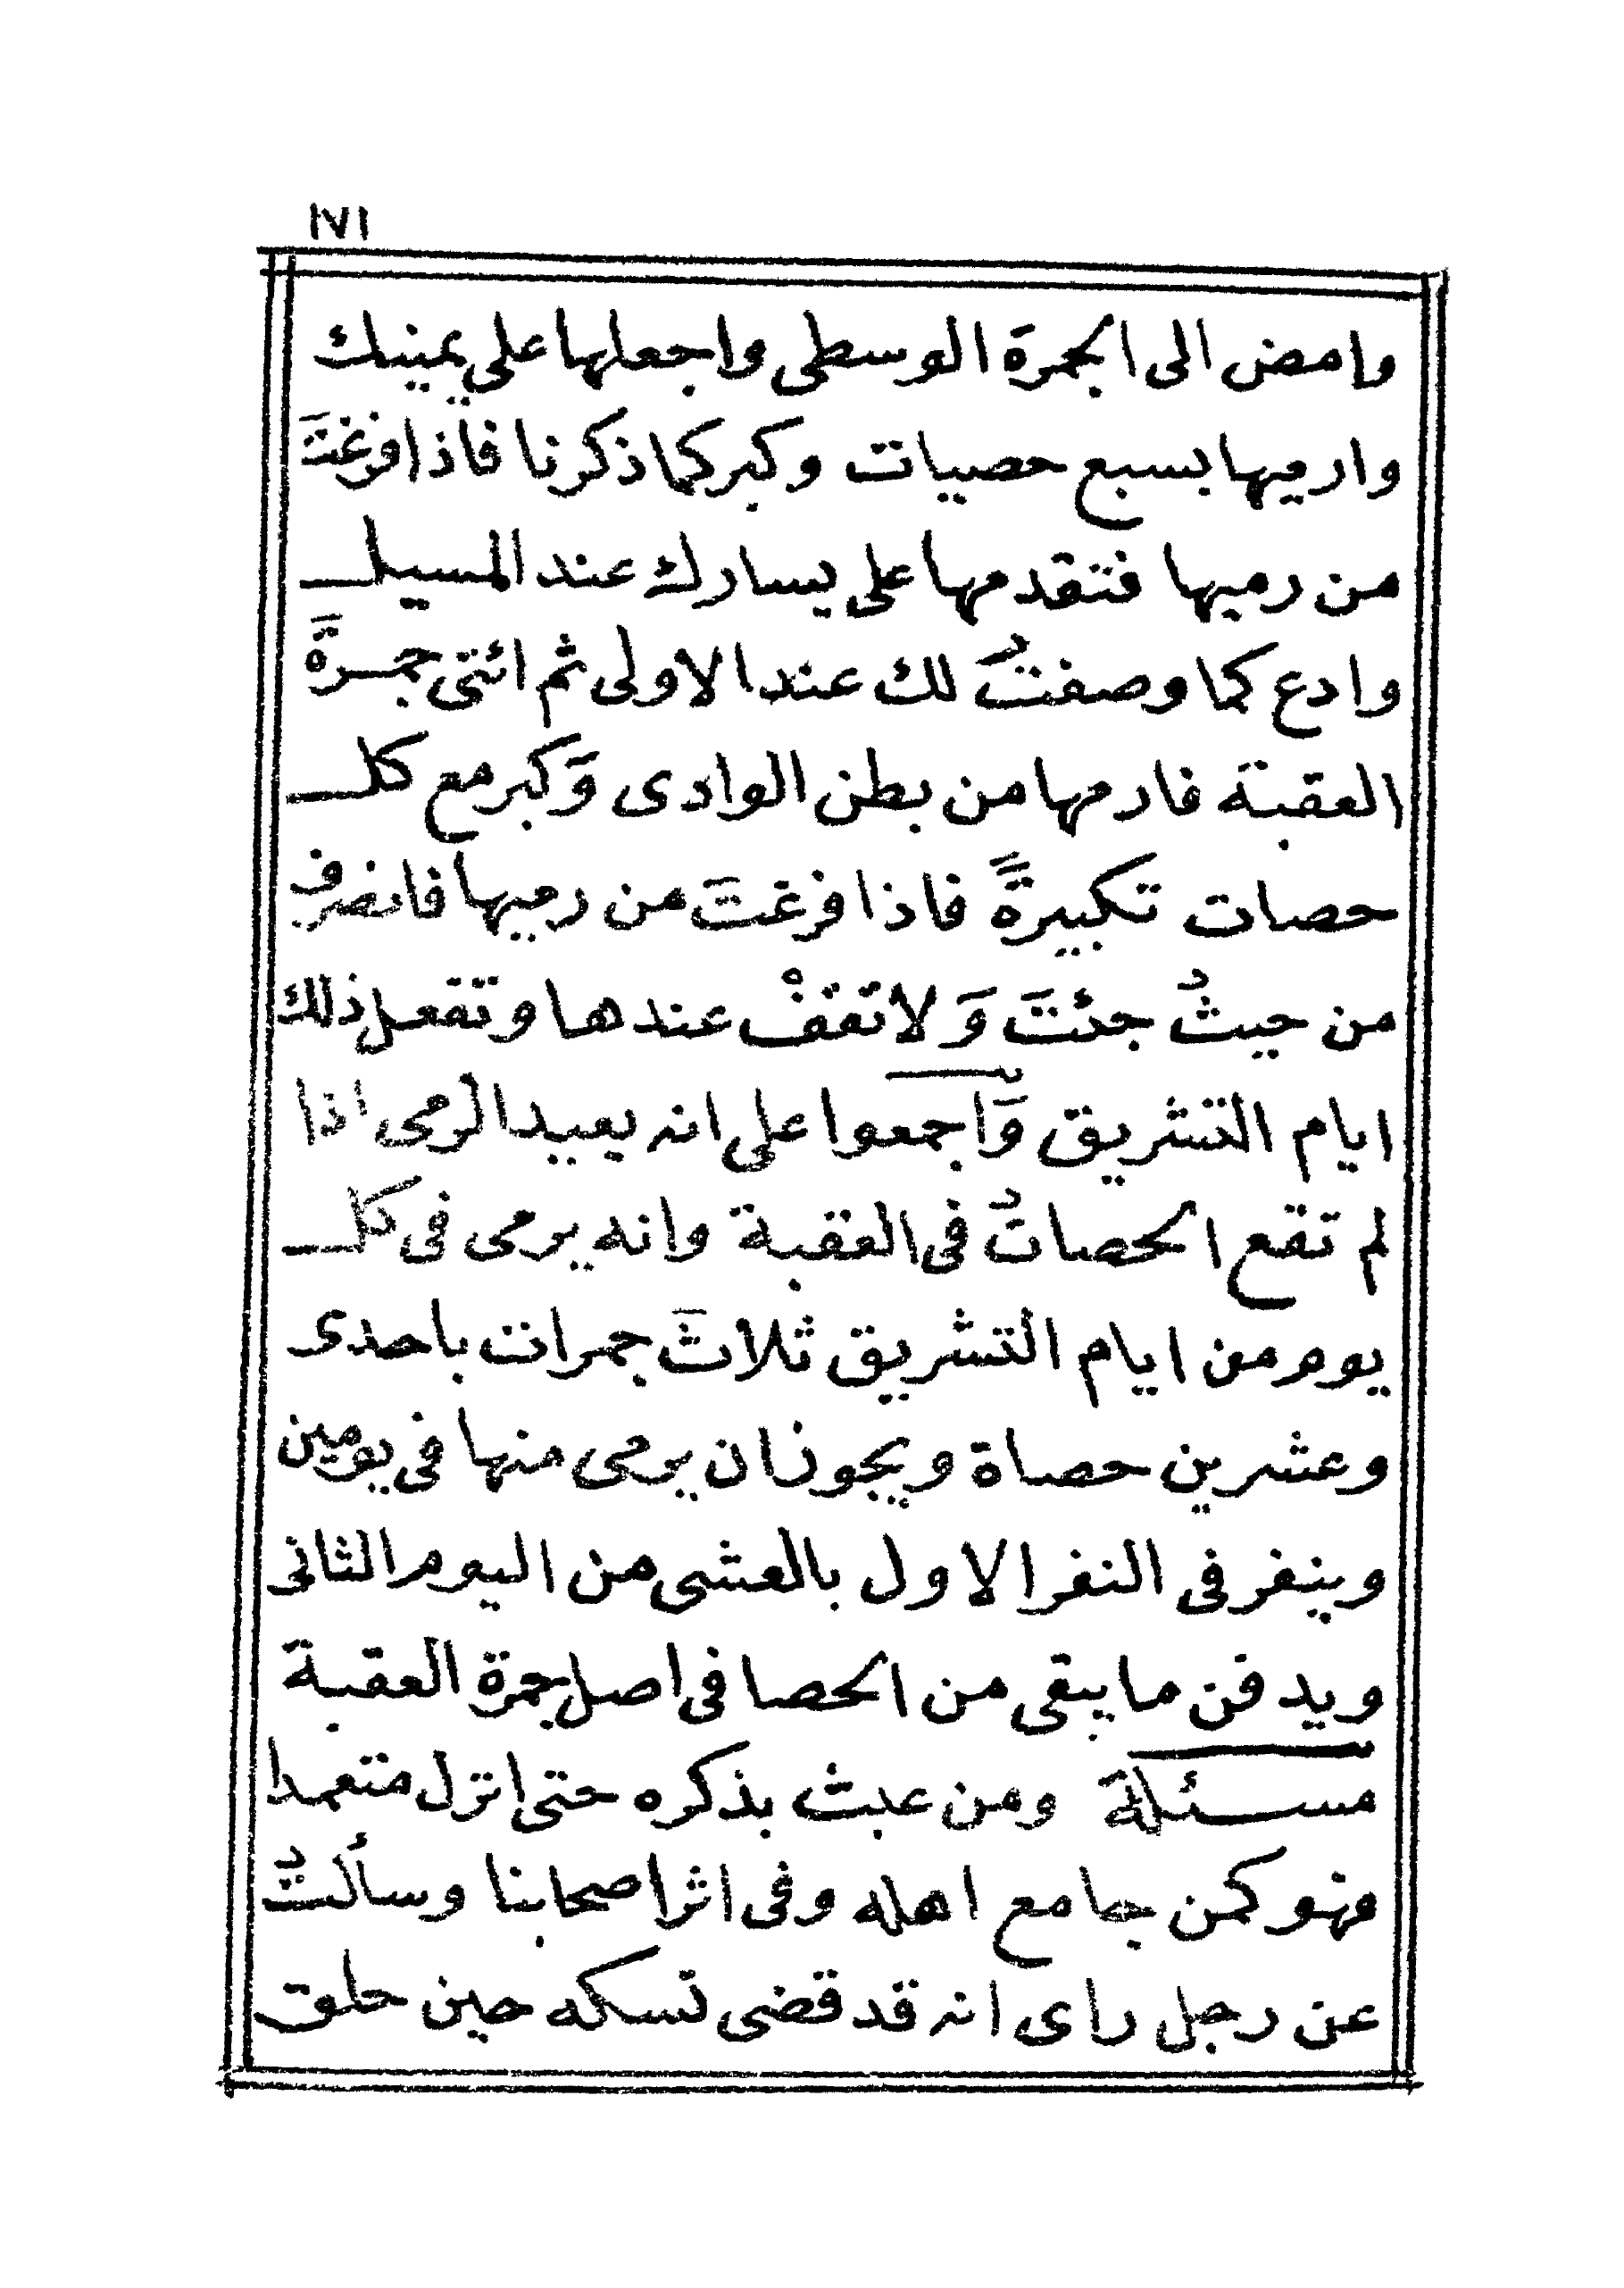 ١٧١
وامض الى الجمرة الوسطى واجعلها على يمينك
وارميها بسبع حصيات وكبر كما ذكرنا فاذا فرغتَ
من رميها فتقدمها على يسارك عند المسيل
وادع كما وصفتُ لك عند الاولى ثم ائتى جمرةَ
العقبة فارمها من بطن الوادى وَكبر مع كل
حصات تكبيرةً فاذا فرغتَ من رميها فانصرف
من حيثُ جئتَ وَلا تقفْ عندها وتفعل ذلك
ايام التشريق وَاجمعوا على انه يعيد الرمى اذا
لم تقع الحصاتُ فى العقبة وانه يرمى فى كل
يوم من ايام التشريق ثلاثَ جمرات باحدى
وعشرين حصاة ويجوز ان يرمى منها فى يومين
وينفر فى النفر الاول بالعشى من اليوم الثانى
ويدفن ما يبقى من الحصا فى اصل جمرة العقبة
مسئلة ومن عبث بذكره حتى انزل متعمدا
فهو كمن جامع اهله وفى اثر اصحابنا وسألتُ
عن رجل راى انه قد قضى نسكه حين حلق